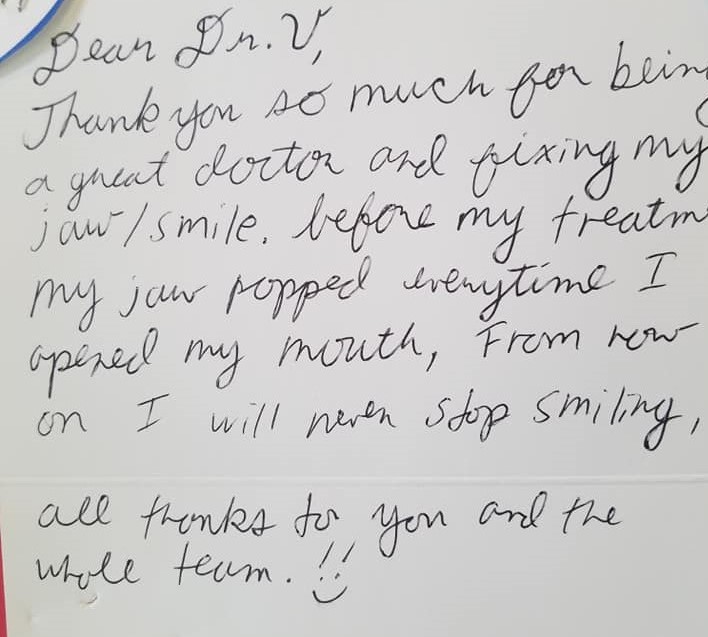 Dear Dr. V,
Thank you so much for bein
a great doctor and fixing my
jaw/smile. before my treatm
my jaw popped everytime I
opened my mouth, From now
on I will never stop smiling,
all thanks to you and the
whole team. !!